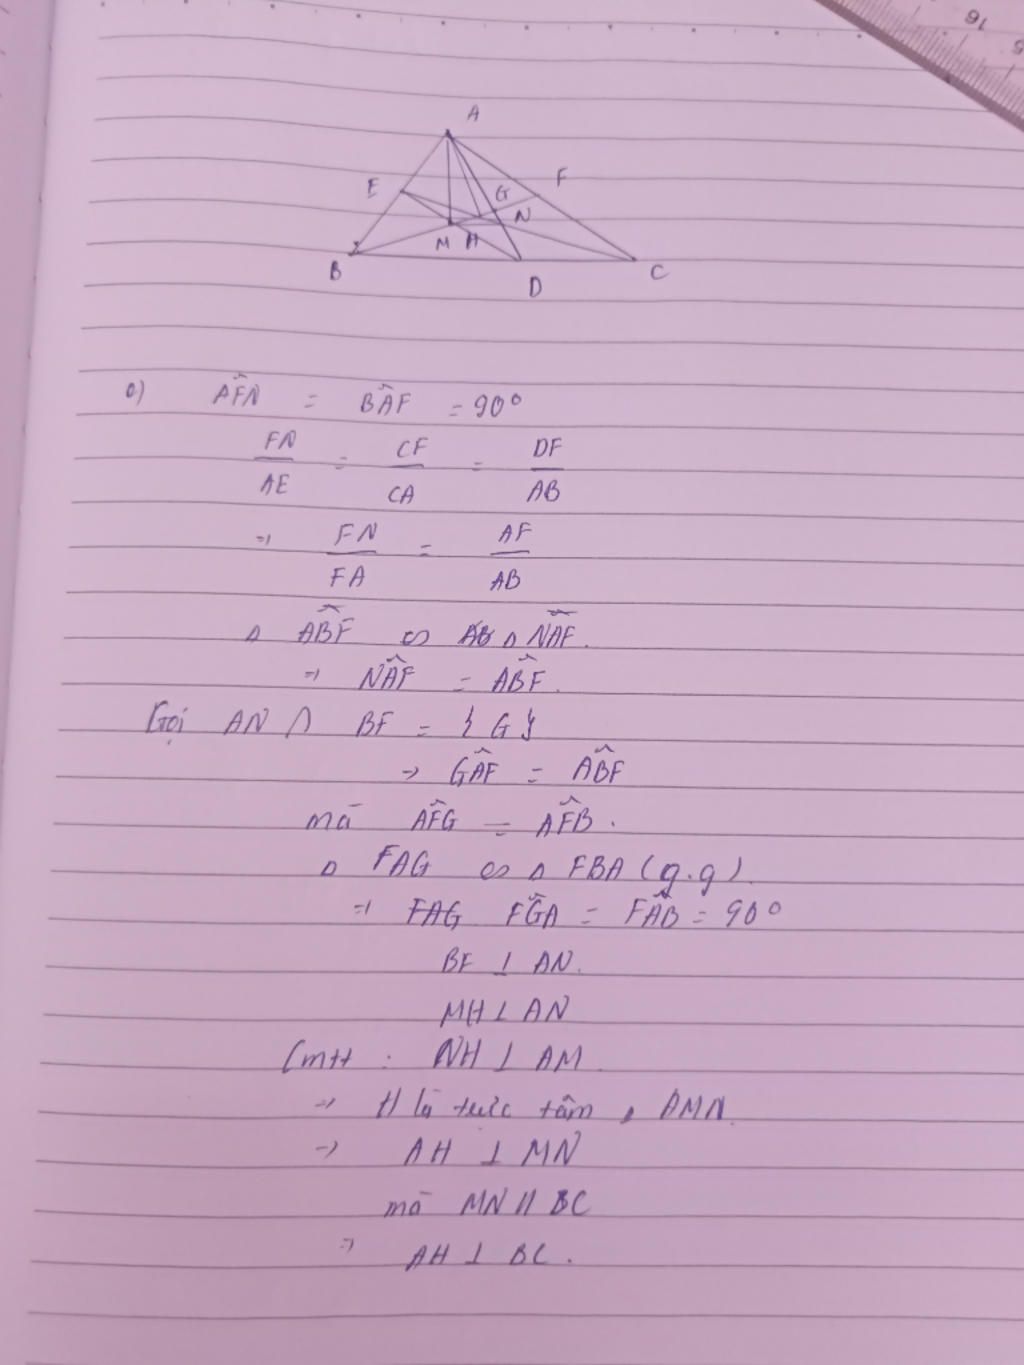 16
A
E
F
G
N
M
H
B
D
C
c) AF̂N = BÂF = 90°
FN/AE = CF/CA = DF/AB
⇒ FN/FA = AF/AB
Δ ABF ∽ Δ NAF.
⇒ NÂF = AB̂F.
Gọi AN ∩ BF = {G}
⇒ GÂF = AB̂F
mà AF̂G = AF̂B.
Δ FAG ∽ Δ FBA (g.g).
⇒ FĜA = FÂB = 90°
BF ⊥ AN.
MH ⊥ AN
CmH : NH ⊥ AM.
⇒ H là trực tâm Δ AMN.
⇒ AH ⊥ MN
mà MN // BC
⇒ AH ⊥ BC.